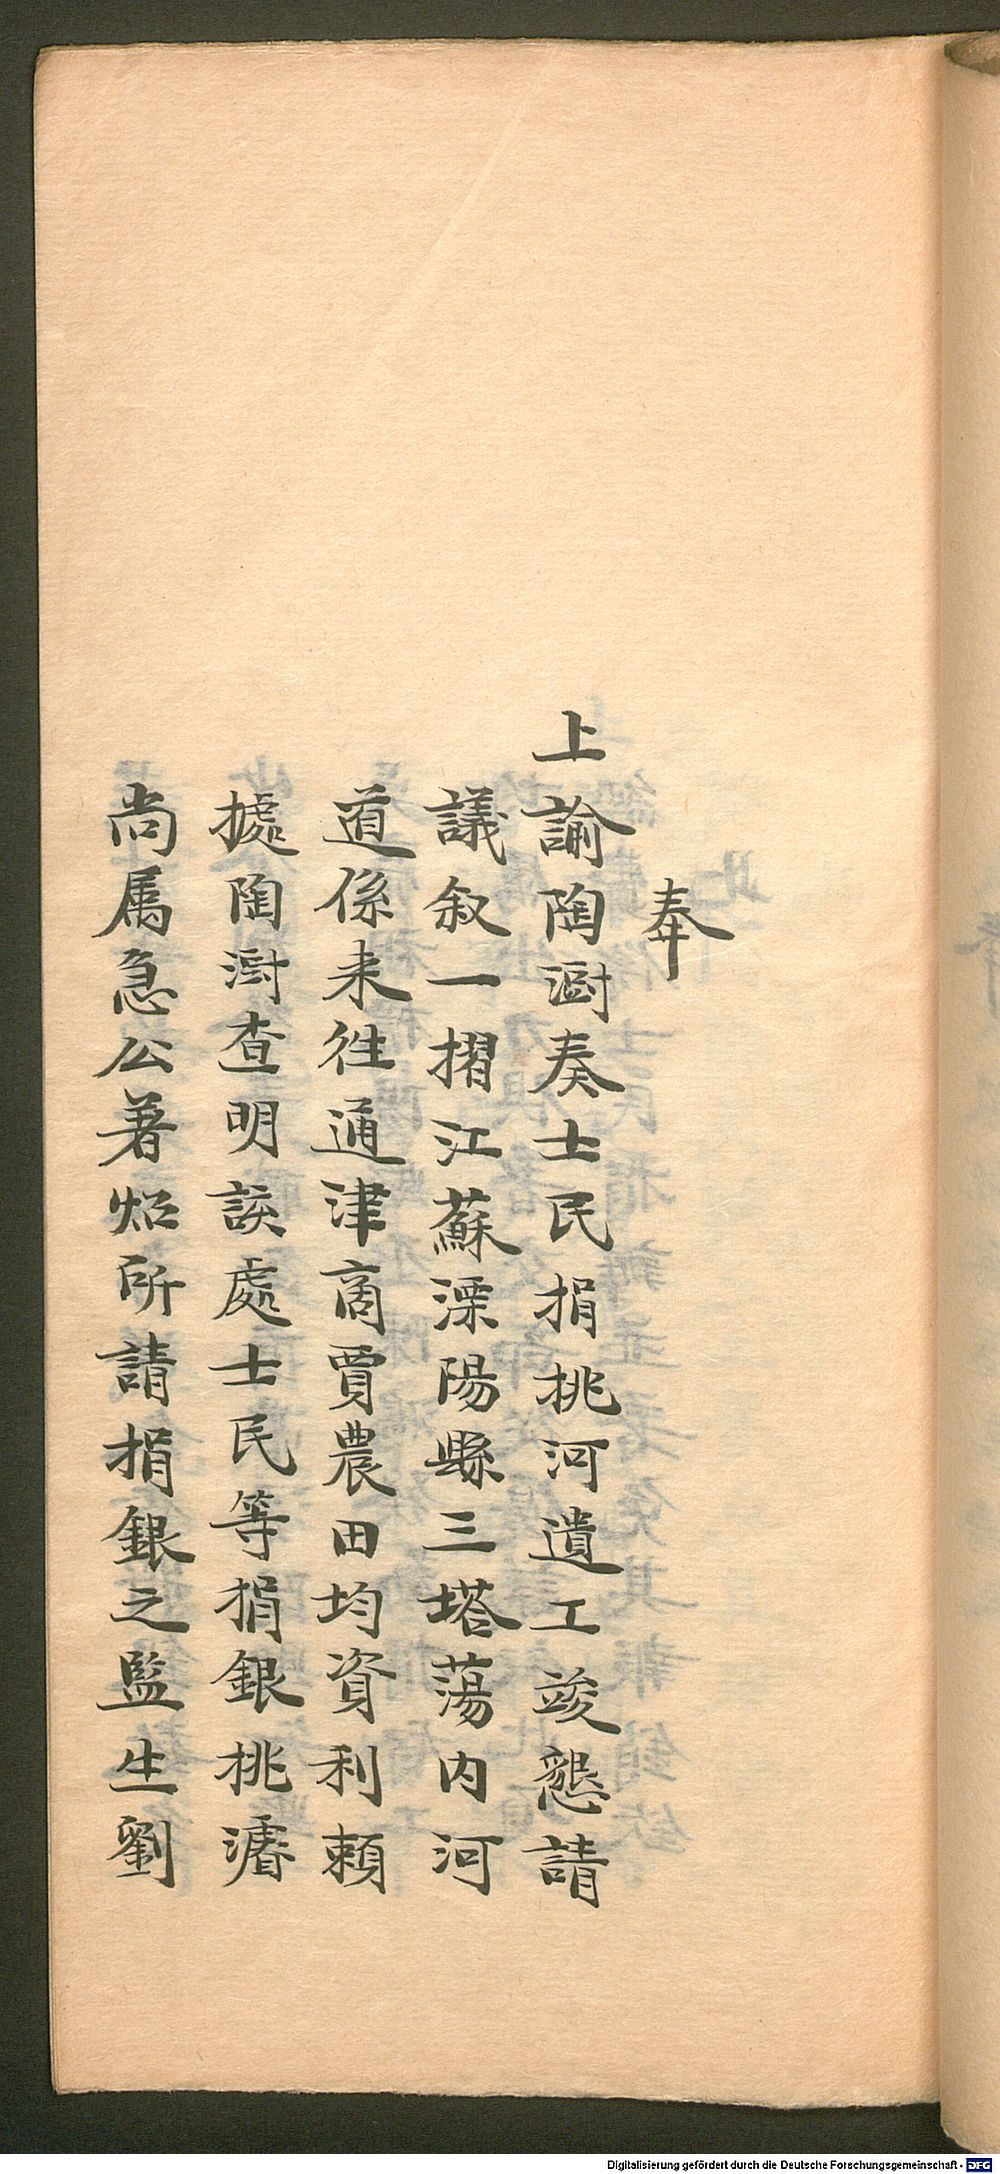 奉
上諭陶澍奏士民捐挑河道工竣懇請
議叙一摺江蘇溧陽縣三塔蕩内河
道係来徃通津商賈農田均資利賴
據陶澍查明該處士民等捐銀挑濬
尚属急公著炤所請捐銀之監生劉
Digitalisierung gefördert durch die Deutsche Forschungsgemeinschaft - DFG